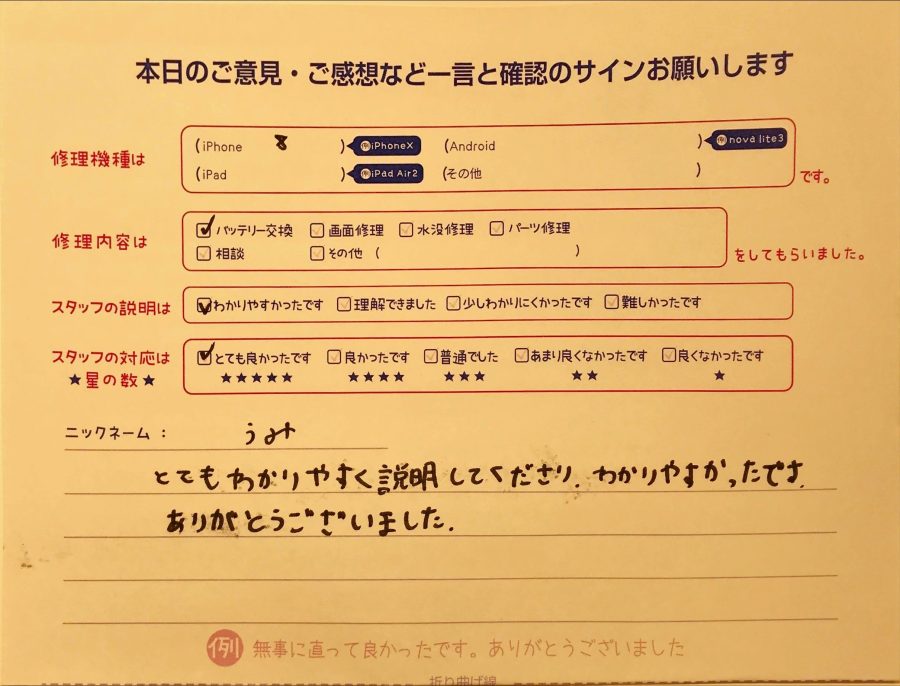 本日のご意見・ご感想など一言と確認のサインお願いします
修理機種は (iPhone 8 ) 例iPhoneX (Android ) 例nova lite3
(iPad ) 例iPad Air2 (その他 ) です。
修理内容は バッテリー交換 画面修理 水没修理 パーツ修理
相談 その他 ( ) をしてもらいました。
スタッフの説明は わかりやすかったです 理解できました 少しわかりにくかったです 難しかったです
スタッフの対応は とても良かったです 良かったです 普通でした あまり良くなかったです 良くなかったです
★星の数★ ★★★★★ ★★★★ ★★★ ★★ ★
ニックネーム： うみ
とてもわかりやすく説明してくださり、わかりやすかったです。
ありがとうございました。
例 無事に直って良かったです。ありがとうございました
折り曲げ線